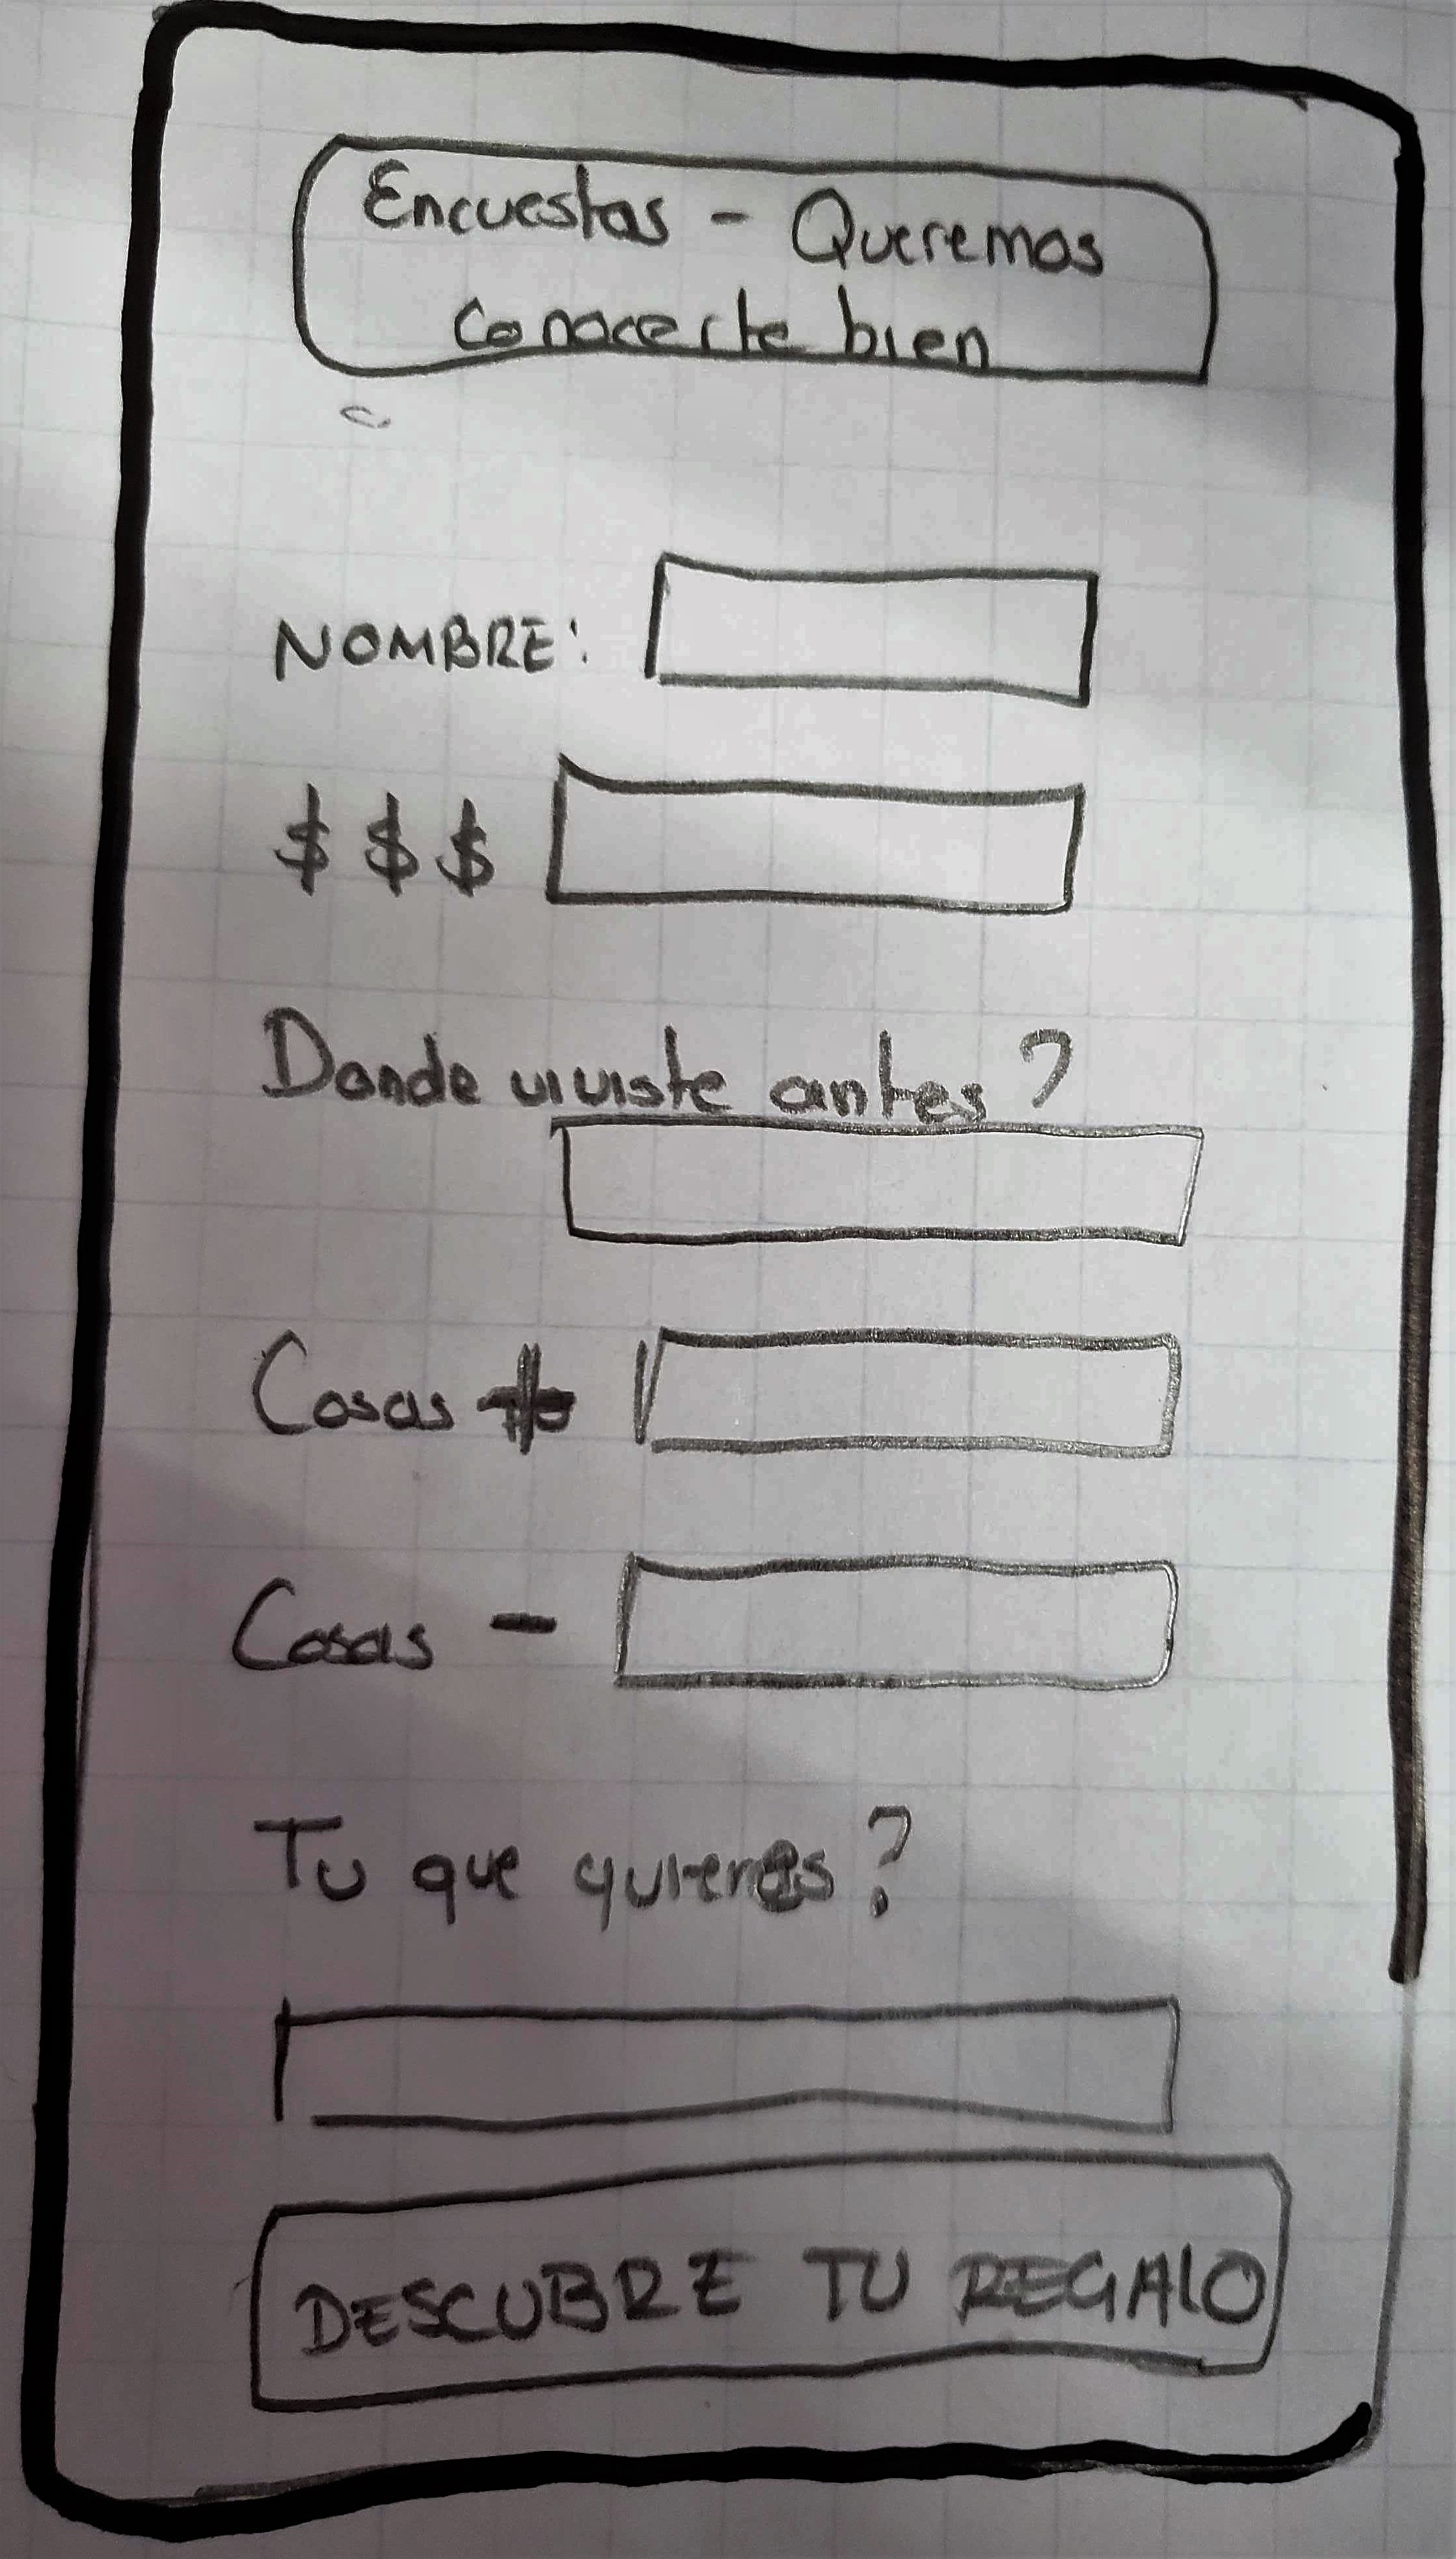 Encuestas - Queremos
Conocerte bien
NOMBRE:
$ $ $
Donde viviste antes?
Cosas +
Cosas -
Tu que quieres?
DESCUBRE TU REGALO